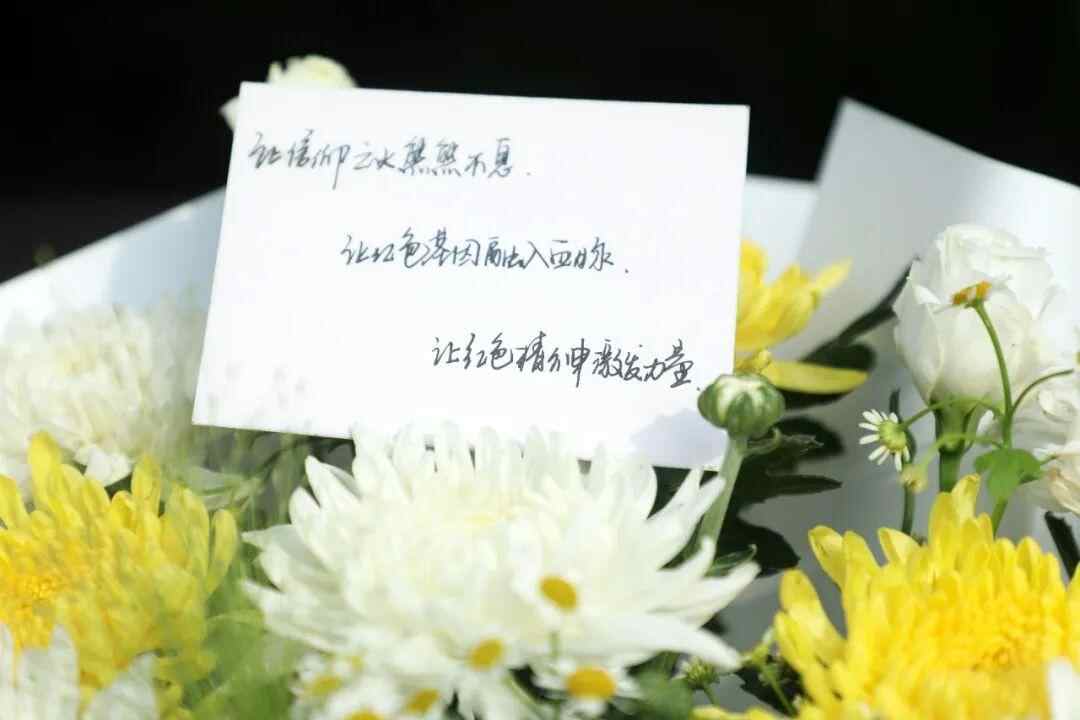 让信仰之火熊熊不息.
让红色基因融入血脉.
让红色精神激发力量.